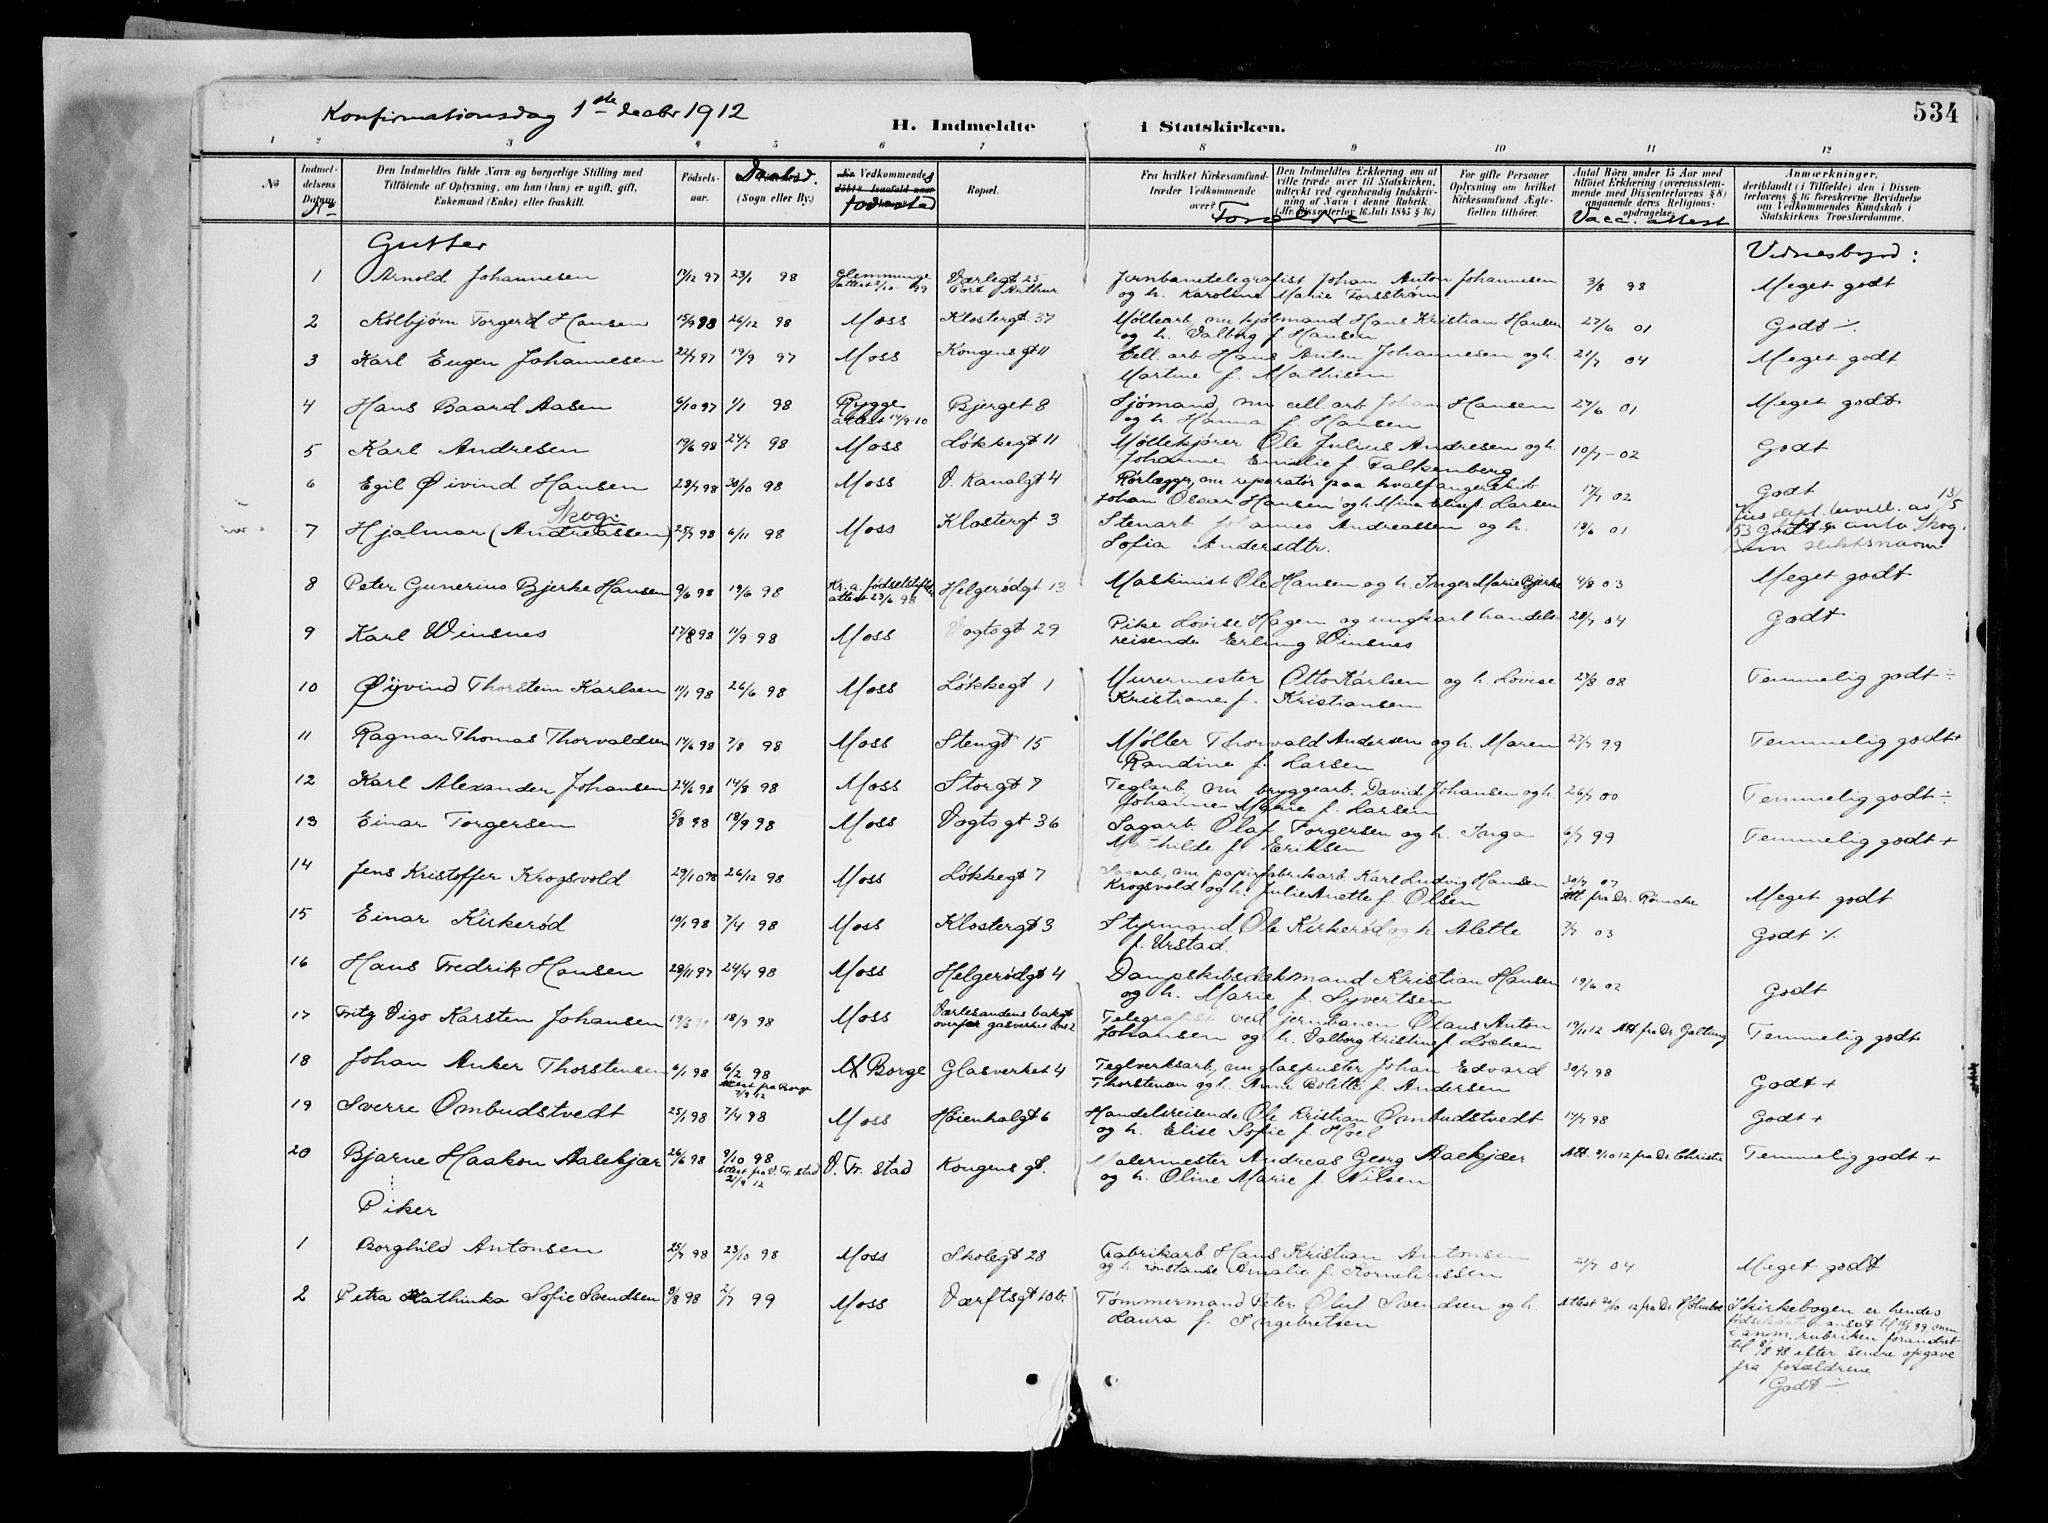 Konfirmationsdag 1ste decbr 1912
534
H. Indmeldte i Statskirken.
1 2 3 4 5 6 7 8 9 10 11 12
No
Indmeldelsens Datum. No
Den Indmeldtes fulde Navn og borgerlige Stilling med
Tilföiende af Oplysning, om han (hun) er ugift, gift,
Enkemand (Enke) eller fraskilt.
Födselsaar.
Daabsd.
(Sogn eller By.)
Vedkommendes fødested
Bopæl.
Fra hvilket Kirkesamfund
træder Vedkommende
over?
Den Indmeldtes Erklæring om at
ville træde over til Statskirken,
udtrykt ved egenhændig Indskrivning
af Navn i denne Rubrik.
(Jfr. Dissenterlov 16 Juli 1845 § 16)
For gifte Personer
Oplysning om hvilket
Kirkesamfund Ægtefællen
tilhörer.
Antal Börn under 15 Aar med
tilföiet Erklæring (overensstemmende
med Dissenterlovens § 8)
angaaende deres Religionsopdragelse.
Vacc. attest
Anmærkninger,
deriblandt (i Tilfælde) den i Dissenterlovens
§ 16 foreskrevne Bevidnelse
om Vedkommendes Kundskab i
Statskirkens Troeslærdomme.
Forældre
Gutter
Vidnesbyrd:
1 Arnold Johannesen 17/12 97 23/1 98 Glemminge Værlegt 25 Jernbanetelegrafist Johan Anton Johannesen 3/8 98 Meget godt
Port Arthur og h. Karoline Marie Forsstrøm
2 Kolbjørn Torgerd Hansen 15/9 98 26/12 98 Moss Klostergt 37 Møllearb, nu kjølmand Hans Kristian Hansen 27/6 01 Godt ÷
og h. Valborg f. Hansen
3 Karl Eugen Johannesen 22/7 97 19/9 97 Moss Kongensgt 11 Cell. arb Hans Anton Johannesen og h. 21/7 04 Meget godt
Martine f. Mathisen
4 Hans Baard Aasen 6/10 97 1/1 98 Rygge Bjerget 8 Sjømand, nu cell. arb Johan Hansen 27/6 01 Meget godt
attest 14/9 10 og h. Hanna f. Hansen
5 Karl Andresen 19/6 98 24/7 98 Moss Løkkegt 11 Møllekjører Ole Julius Andresen og h. 10/7 - 02 Godt
Johanne Emilie f. Falkenberg
6 Egil Øivind Hansen 28/7 98 30/10 98 Moss V. Kanalgt 4 Rörlægger, nu reparatør paa hvalfangerskib 17/7 02 Godt
Johan Oscar Hansen og h. Mina Elise f. Larsen
Skog.
7 Hjalmar (Andreassen) 25/7 98 6/11 98 Moss Klostergt 3 Stenarb Johannes Andreassen og h. 18/6 01 Jus. dept. bevill. av 13/5
Sofia Andersdtr. 53 Godt å anta Skog
som slektsnavn
8 Peter Gunerius Bjerke Hansen 9/6 98 19/6 98 Kr.a fødselstiftelse Helgerødgt 13 Maskinist Ole Hansen og h. Inger Marie Bjerke 4/8 03 Meget godt
attest 23/6 98
9 Karl Winsnes 17/8 98 11/9 98 Moss Vogtsgt 29 Pike Lovise Hagen og ungkarl handels- 28/7 04 Godt
reisende Erling Winsnes
10 Øyvind Thorstein Karlsen 11/1 98 26/6 98 Moss Løkkegt 1 Murermester Otto Karlsen og h. Lovise 29/8 08 Temmelig godt ÷
Kristiane f. Kristiansen
11 Ragnar Thomas Thorvaldsen 14/6 98 7/8 98 Moss Stengt 15 Møller Thorvald Andersen og h. Maren 27/7 99 Temmelig godt +
Randine f. Larsen
12 Karl Alexander Johansen 24/6 98 14/8 98 Moss Storgt 7 Teglarb, nu bryggearb. David Johansen og h. 26/7 00 Temmelig godt ÷
Johanne Marie f. Larsen
13 Einar Torgersen 5/8 98 18/9 98 Moss Vogtsgt 36 Sagarb. Olaf Torgersen og h. Inga 6/7 99 Temmelig godt +
Mathilde f. Eriksen
14 Jens Kristoffer Krogsvold 29/10 98 26/12 98 Moss Løkkegt 7 Sagarb, nu papirfabrikarb Karl Ludvig Hansen 30/7 07 Meget godt
Krogsvold og h. Julie Anette f. Olsen Att. fra Dr.
15 Einar Kirkerød 19/1 98 7/4 98 Moss Klostergt 3 Styrmand Ole Kirkerød og h. Alette 7/7 03 Godt ÷
f. Urstad
16 Hans Fredrik Hansen 29/11 97 24/4 98 Moss Helgerødgt 4 Dampskibsdæksmand Kristian Hansen 19/6 02 Godt
og h. Marie f. Syvertsen
17 Fritz Vigo Karsten Johansen 19/5 98 18/9 98 Moss Værlesandens bakgt Telegrafist ved jernbanen Olaus Anton 19/11 12 Att. fra Dr. Galtung Temmelig godt
overfor gasverket Johansen og h. Valborg Kristine f. Løchen
18 Johan Anker Thorstensen 6/1 98 6/2 98 Borge Glasverket 4 Teglverksarb, nu glaspuster Johan Edvard 30/7 98 Godt +
attest fra Borge Thorstensen og h. Anna Bolette f. Andersen
7/9 12
19 Sverre Ombudstvedt 25/1 98 7/4 98 Moss Høienhalgt 6 Handelsreisende Ole Kristian Ombudstvedt 14/7 98 Godt +
og h. Elise Sofie f. Hoel
20 Bjarne Haakon Aalekjær 26/6 98 9/10 98 V. Fr. stad Kongens gt. Malermester Andreas Georg Aaekjær Att. 9/10 12 fra Dr. Christie Temmelig godt +
attest fra V. Fr. stad og h. Oline Marie f. Nilsen
21/9 12
Piker
1 Borghild Antonsen 25/7 98 23/10 98 Moss Skolegt 28 Fabrikarb. Hans Kristian Antonsen 21/7 04 Meget godt
og h. Constanse Amalie f. Korneliussen
2 Petra Kathinka Sofie Svendsen 8/8 98 2/7 99 Moss Værftsgt 10 b. Tømmermand Peter Oluf Svendsen og h. Attest 21/10 12 fra Dr Holmboe I kirkebogen er hendes
Laura f. Ingebretsen fødselsdato ansat til 18/1 99, men
i anm. rubriken forandret
til 8/8 98 efter senere opgave
fra forældrene
Godt ÷